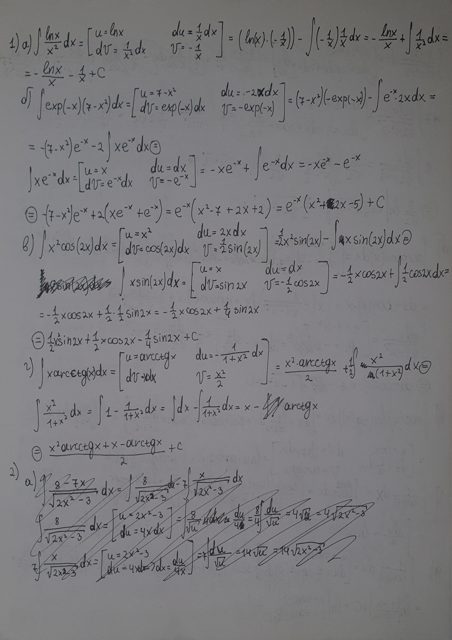 1) а) ∫ lnx/x² dx = [u = lnx du = 1/x dx dv = 1/x² dx v = -1/x] = (ln(x)·(-1/x)) - ∫(-1/x) 1/x dx = -lnx/x + ∫ 1/x² dx =
= - lnx/x - 1/x + C
б) ∫ exp(-x)(7-x²)dx = [u = 7-x² du = -2xdx dv = exp(-x)dx v = -exp(-x)] = (7-x²)(-exp(-x)) - ∫e⁻ˣ·2xdx =
= -(7-x²)e⁻ˣ - 2∫xe⁻ˣdx ⊜
∫xe⁻ˣdx = [u = x du = dx dv = e⁻ˣdx v = -e⁻ˣ] = -xe⁻ˣ + ∫e⁻ˣdx = -xe⁻ˣ - e⁻ˣ
⊜ -(7-x²)e⁻ˣ + 2(xe⁻ˣ + e⁻ˣ) = e⁻ˣ(x²-7+2x+2) = e⁻ˣ(x²+2x-5) + C
в) ∫x²cos(2x)dx = [u = x² du = 2xdx dv = cos(2x)dx v = 1/2 sin(2x)] = 1/2 x²sin(2x) - ∫xsin(2x)dx ⊜
∫xsin(2x)dx = [u = x du = dx dv = sin2x v = -1/2 cos2x] = -1/2 xcos2x + ∫1/2 cos2xdx =
= -1/2 xcos2x + 1/2·1/2 sin2x = -1/2 xcos2x + 1/4 sin2x
⊜ 1/2 x²sin2x + 1/2 xcos2x - 1/4 sin2x + C
г) ∫xarcctg(x)dx = [u = arcctgx du = -1/(1+x²) dx dv = xdx v = x²/2] = x²·arcctgx/2 + 1/2 ∫ x²/(1+x²) dx ⊜
∫ x²/(1+x²) dx = ∫ 1 - 1/(1+x²) dx = ∫dx - ∫ 1/(1+x²) dx = x - arctgx
⊜ (x²arcctgx + x - arctgx)/2 + C
2) а) ∫ (8-7x)/√(2x²-3) dx = ∫ 8/√(2x²-3) dx - 7∫ x/√(2x²-3) dx
∫ 8/√(2x²-3) dx = [u = 2x²-3 du = 4xdx] = 8/4 ∫ du/√u = 4√u = 4√(2x²-3)
7∫ x/√(2x²-3) dx = [u = 2x²-3 du = 4xdx => dx = du/4x] = 7∫ du/√u = 14√u = 14√(2x²-3)